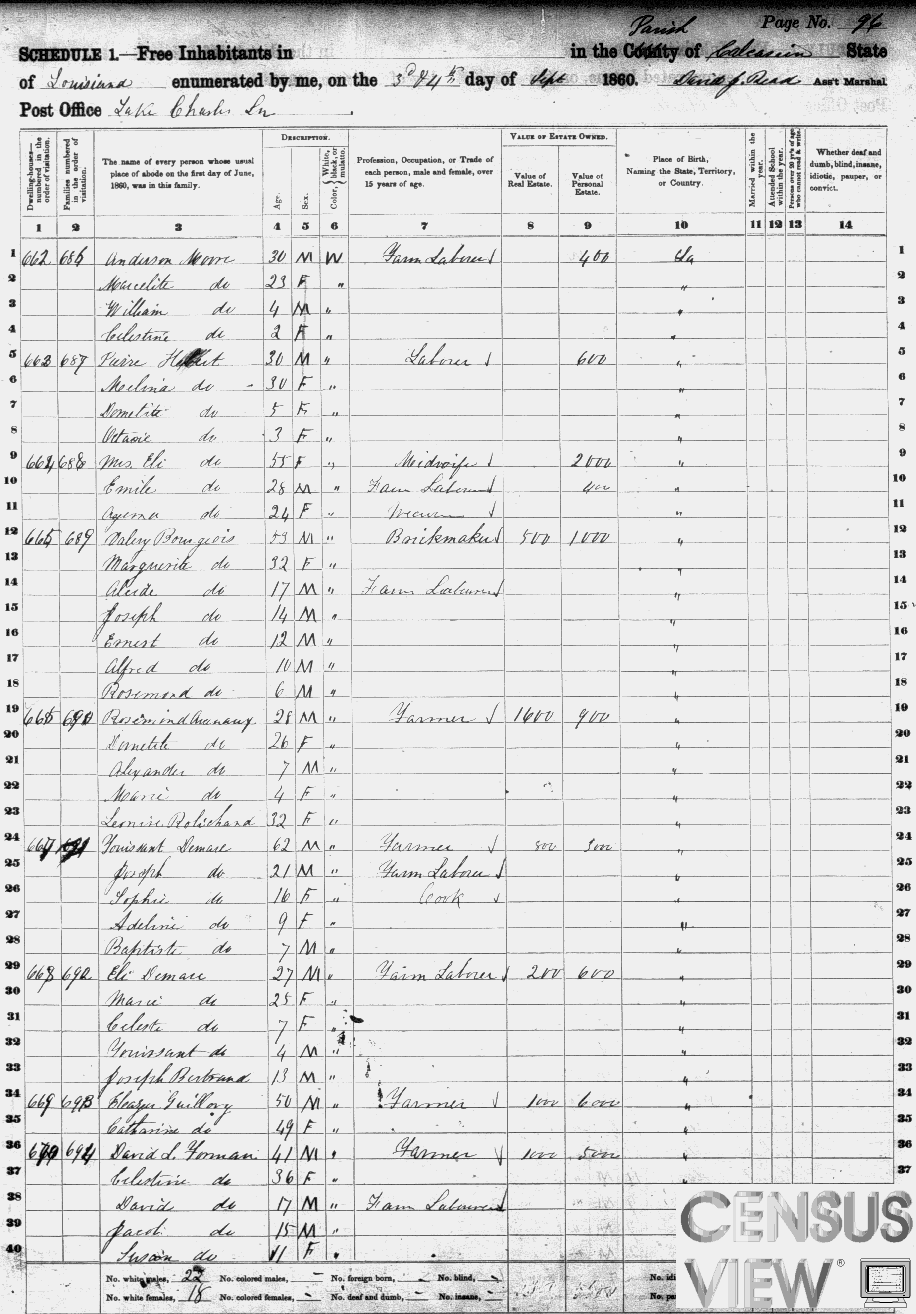 Parish
Page No. 96
SCHEDULE 1.—Free Inhabitants in in the County of Calcasieu State
of Louisiana enumerated by me, on the 3d & 4th day of Sept 1860. David J. Read Ass't Marshal
Post Office Lake Charles La
Dwelling-houses—numbered in the order of visitation.
Families numbered in the order of visitation.
The name of every person whose usual place of abode on the first day of June, 1860, was in this family.
DESCRIPTION.
Age.
Sex.
Color, White, black, or mulatto.
Profession, Occupation, or Trade of each person, male and female, over 15 years of age.
VALUE OF ESTATE OWNED.
Value of Real Estate.
Value of Personal Estate.
Place of Birth, Naming the State, Territory, or Country.
Married within the year.
Attended School within the year.
Persons over 20 y'rs of age who cannot read & write.
Whether deaf and dumb, blind, insane, idiotic, pauper, or convict.
1 2 3 4 5 6 7 8 9 10 11 12 13 14
1 662 686 Anderson Moore 30 M W Farm Laborer 400 La 1
2 Marcelite do 23 F " " 2
3 William do 4 M " " 3
4 Celestine do 2 F " " 4
5 663 687 Pierre Hebert 30 M " Laborer 600 " 5
6 Melina do 30 F " " 6
7 Dometile do 5 F " " 7
8 Octavie do 3 F " " 8
9 664 688 Mrs. Eli do 55 F " Midwife 2000 " 9
10 Emile do 28 M " Farm Laborer 400 " 10
11 do 24 F " " 11
12 665 689 Valery Bourgeois 53 M " Brickmaker 500 1000 " 12
13 Marguerite do 32 F " " 13
14 Alcide do 17 M " Farm Laborer " 14
15 Joseph do 14 M " " 15
16 Ernest do 12 M " " 16
17 Alfred do 10 M " " 17
18 Rosemond do 6 M " " 18
19 666 690 Rosemond 28 M " Farmer 1600 900 " 19
20 Dometile do 26 F " " 20
21 Alexander do 7 M " " 21
22 Marie do 4 F " " 22
23 Leonise Robichand 32 F " " 23
24 667 691 Touissant Demare 62 M " Farmer 800 5000 " 24
25 Joseph do 21 M " Farm Laborer " 25
26 Sophie do 16 F " Cook " 26
27 Adeline do 9 F " " 27
28 Baptiste do 7 M " " 28
29 668 692 Eli Demare 27 M " Farm Laborer 200 600 " 29
30 Marie do 25 F " " 30
31 Celeste do 7 F " " 31
32 Touissant do 4 M " " 32
33 Joseph Bertrand 13 M " " 33
34 669 693 Eleazer Guillory 50 M " Farmer 1000 6000 " 34
35 Catharine do 49 F " " 35
36 670 694 David L. Forman 41 M " Farmer 1000 5000 " 36
37 Celestine do 36 F " " 37
38 David do 17 M " Farm Laborer
39 Jacob do 15 M "
40 Susan do 11 F "
No. white males, 22 No. colored males, — No. foreign born, — No. blind, —
No. white females, 18 No. colored females, — No. deaf and dumb, — No. insane, —
CENSUS
VIEW®